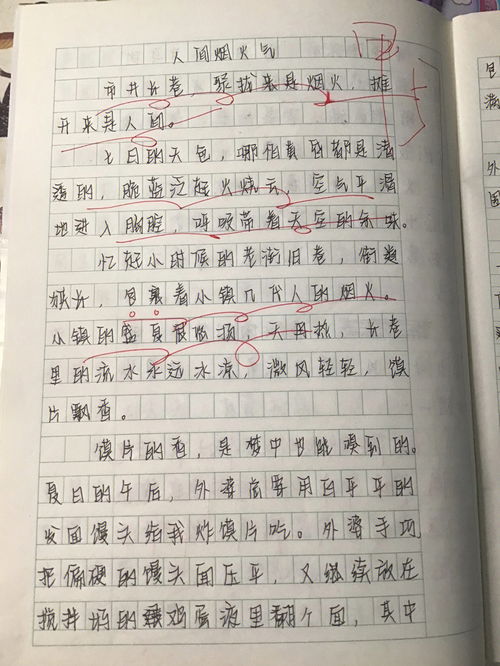 人间烟火气
市井长巷，聚拢来是烟火，摊
开来是人间。
七日的天色，哪怕黄昏都是清
透的，脆蓝泛起火烧云，空气平滑
地进入胸腔，呼吸带着天空的余味。
忆起小时候的老街旧巷，街道
狭长，包裹着小镇几代人的烟火。
小镇的盛夏最临动，天再热，长巷
里的流水永远冰凉，微风轻轻，馍
片飘香。
馍片的香，是梦中也能嗅到的。
夏日的午后，外婆常要用白平平的
发面馒头给我炸馍片吃。外婆手巧
把偏硬的馒头面压平，又继续放在
搅拌好的鸡蛋液里翻个面，其中
包
满
外
国